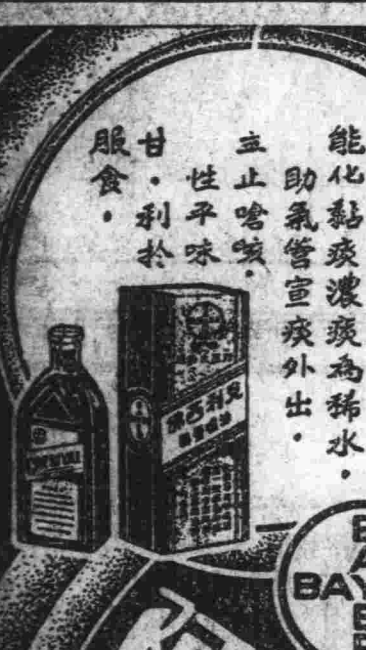 能化黏痰濃痰為稀水．
助氣管宣痰外出．
立止嗆咳．
性平味
甘．利於
服食．
BAY